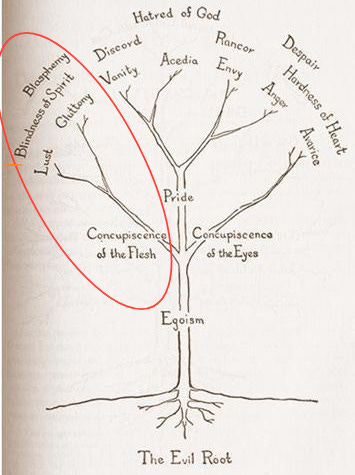 Hatred of God
Discord
Rancor
Despair
Vanity
Acedia
Envy
Hardness of Heart
Blasphemy
Blindness of Spirit
Gluttony
Anger
Lust
Avarice
Pride
Concupiscence
of the Flesh
Concupiscence
of the Eyes
Egoism
The Evil Root